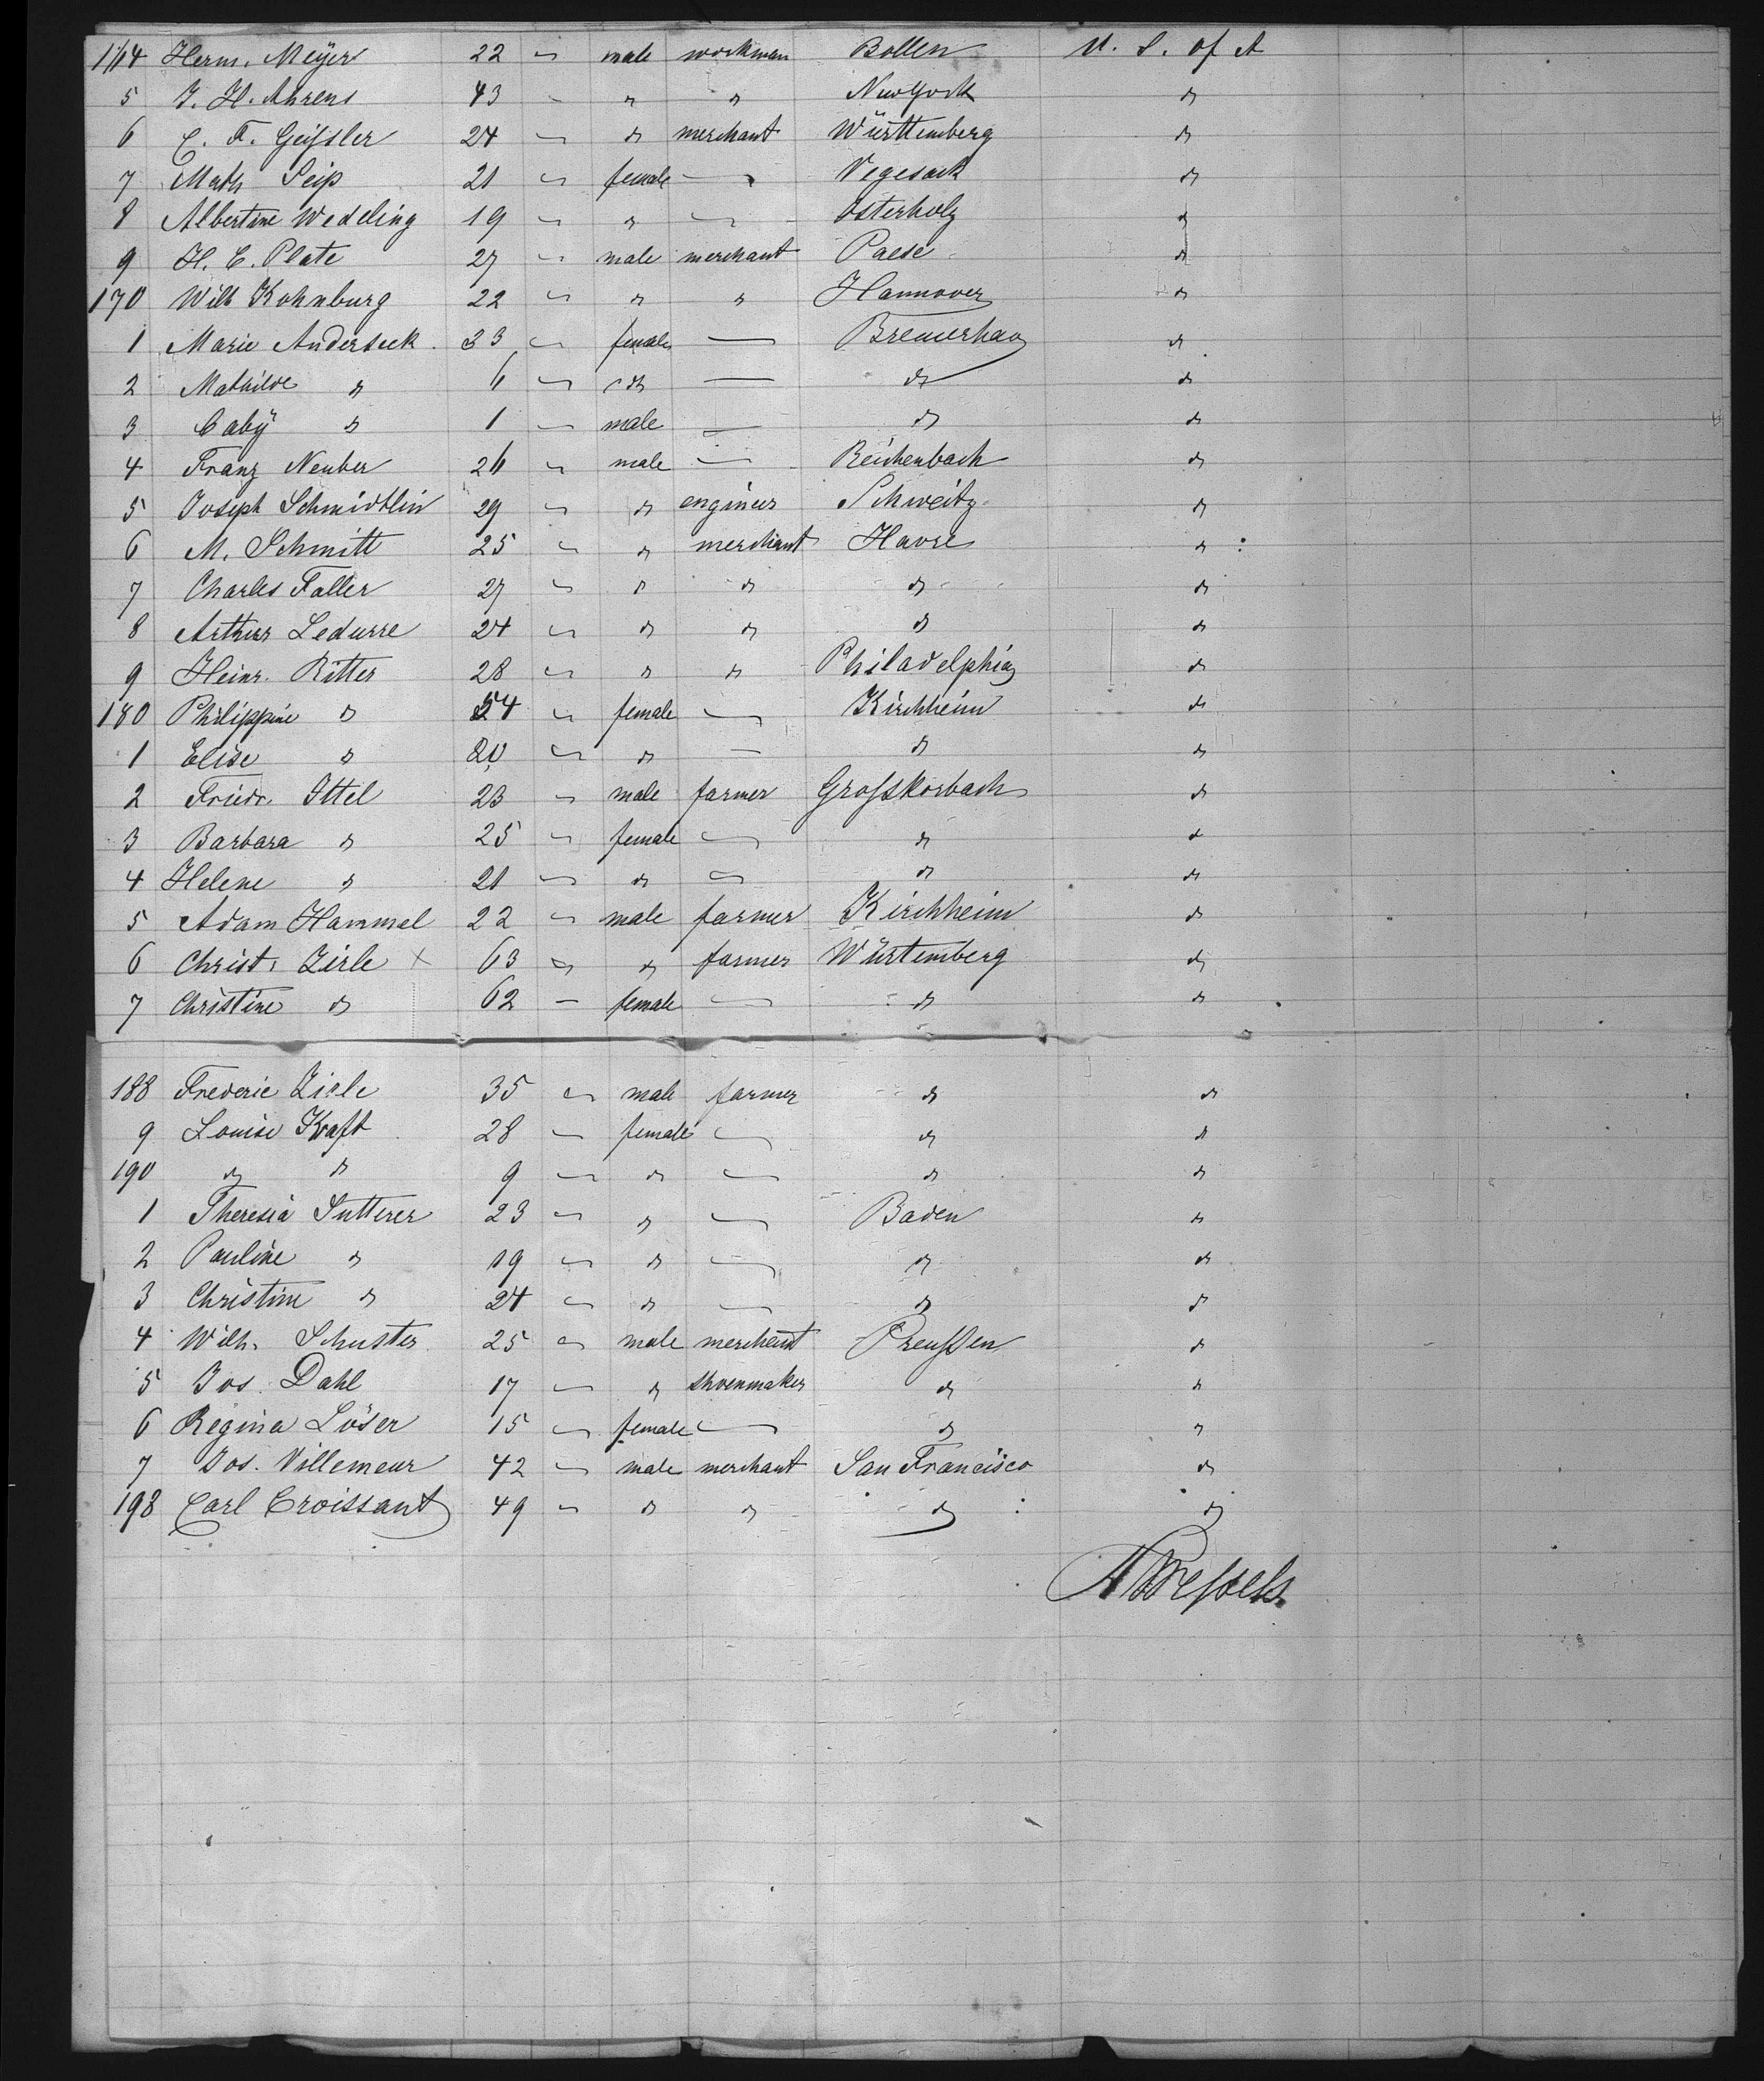 164 Herm. Meÿer 22 " male workman Bollen U. S. of A
5 J. H. Ahrens 43 - " " NewYork "
6 C. F. Geissler 24 " " merchant Württemberg "
7 Math Seip 21 " female — Vegesack "
8 Albertine Wedeling 19 " " — Osterholz "
9 H. C. Plate 27 " male merchant Paese "
170 Wilh Kohnburg 22 " " " Hannover "
1 Marie Anderseck 33 " female — Bremerhav "
2 Mathilde " 6 " " — " "
3 Babÿ " 1 " male — " "
4 Franz Neuber 26 " male — Reichenbach "
5 Joseph Schmidtlin 29 " " engineer Schweitz "
6 M. Schmitt 25 " " merchant Havre "
7 Charles Faller 27 " " " " "
8 Arthur Ledurre 24 " " " " "
9 Heinr. Ritter 28 " " " Philadelphia "
180 Philippine " 54 " female — Kirchheim "
1 Elise " 20 " " — " "
2 Friedr. Ittel 23 " male farmer Grosskorbach "
3 Barbara " 25 " female — " "
4 Helene " 21 " " — " "
5 Adam Hammel 22 " male farmer Kirchheim "
6 Christ. Zirle x 63 " " farmer Würtemberg "
7 Christine " 62 - female — " "
188 Frederic Zirle 35 " male farmer " "
9 Louise Kraft 28 " female — " "
190 " " 9 " " — " "
1 Theresia Sutterer 23 " " — Baden "
2 Pauline " 19 " " — " "
3 Christine " 24 " " — " "
4 Wilh. Schuster 25 " male merchant Preussen "
5 Jos. Dahl 17 " " shoenmaker " "
6 Regina Löser 15 " female — " "
7 Jos. Villemeur 42 " male merchant San Francisco "
198 Carl Croissant 49 " " " " "